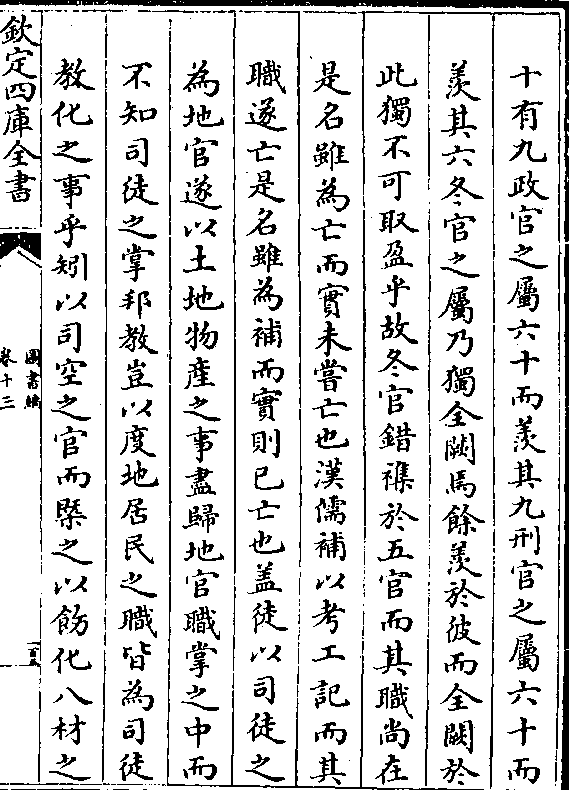 十有九政官之屬六十而羨其九刑官之屬六十而
羨其六冬官之屬乃獨全闕焉餘羨於彼而全闕於
此獨不可取盈乎故冬官錯襍於五官而其職尚在
是名雖為亡而實未嘗亡也漢儒補以考工記而其
職遂亡是名雖為補而實則已亡也盖徒以司徒之
為地官遂以土地物產之事盡歸地官職掌之中而
不知司徒之掌邦教豈以度地居民之職皆為司徒
教化之事乎矧以司空之官而槩之以飭化八材之
欽定四庫全書
圖書編
卷十三